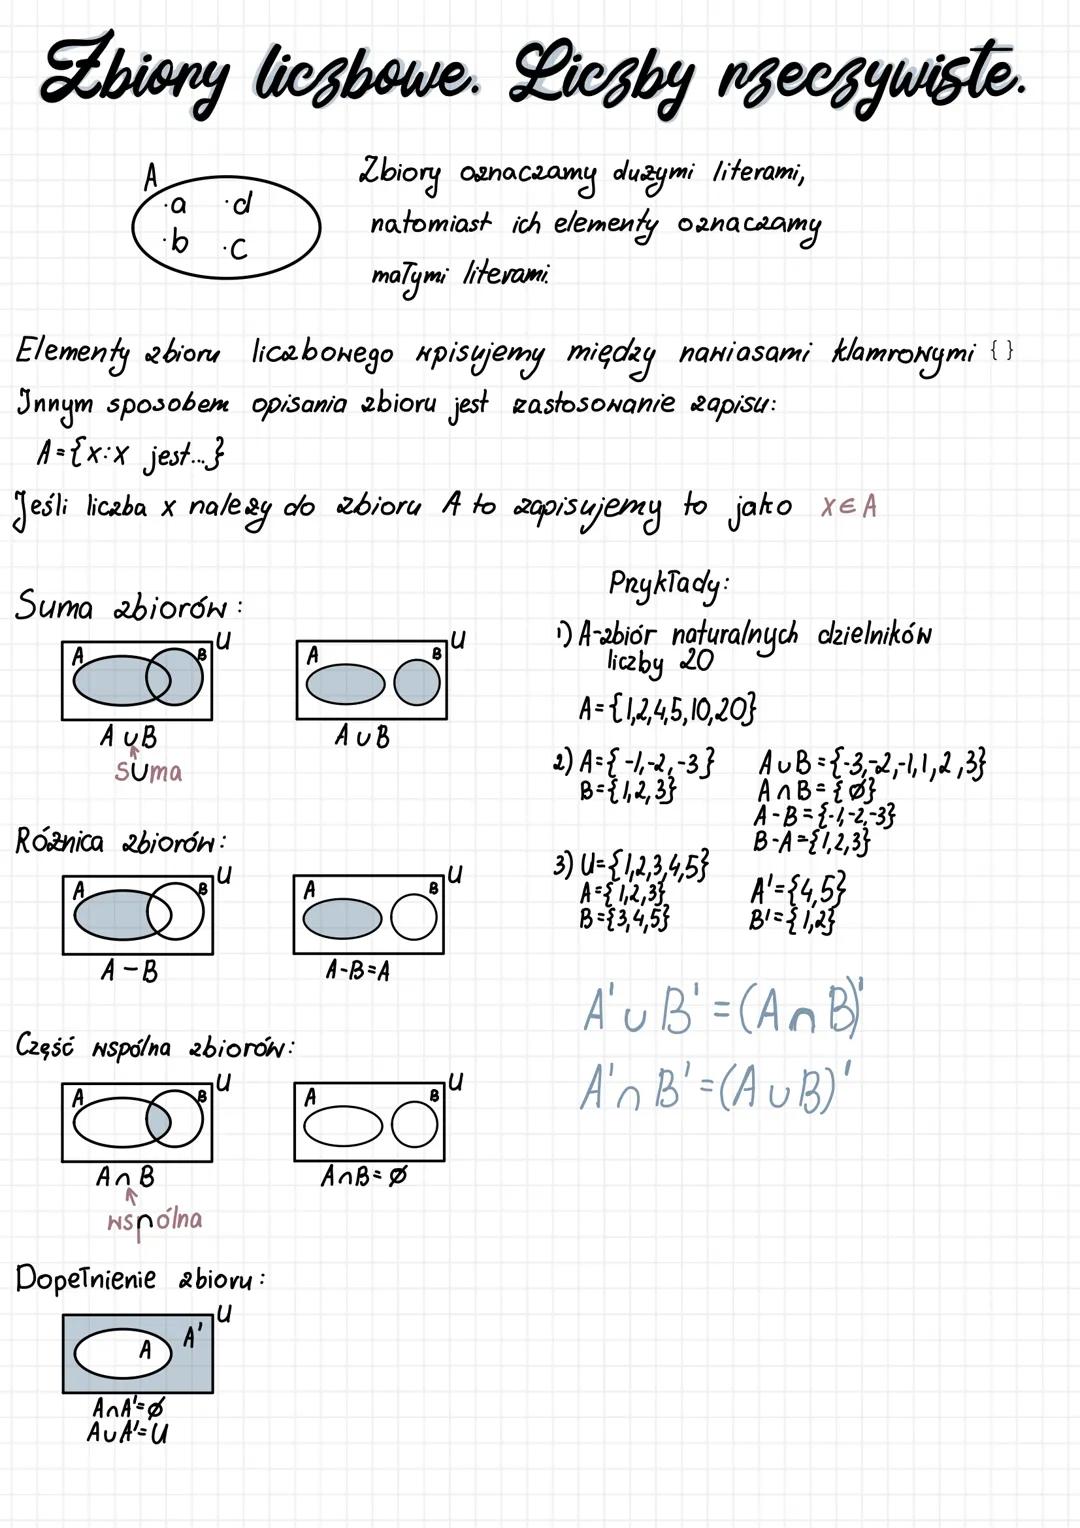 Zbiory liczbowe. Liczby rzeczywiste.
A
·a ·d
·b ·c
Zbiory oznaczamy dużymi literami,
natomiast ich elementy oznaczamy
małymi literami.
Elementy zbioru liczbowego wpisujemy między nawiasami klamrowymi { }
Innym sposobem opisania zbioru jest zastosowanie zapisu:
A={x:x jest...}
Jeśli liczba x należy do zbioru A to zapisujemy to jako x∈A
Suma zbiorów:
A B U
A∪B
suma
A B U
A∪B
Różnica zbiorów:
A B U
A-B
A B U
A-B=A
Część wspólna zbiorów:
A B U
A∩B
wspólna
A B U
A∩B=∅
Dopełnienie zbioru:
A A' U
A∩A'=∅
A∪A'=U
Przykłady:
1) A-zbiór naturalnych dzielników
liczby 20
A={1,2,4,5,10,20}
2) A={-1,-2,-3}
B={1,2,3}
A∪B={-3,-2,-1,1,2,3}
A∩B={∅}
A-B={-1,-2,-3}
B-A={1,2,3}
3) U={1,2,3,4,5}
A={1,2,3}
B={3,4,5}
A'={4,5}
B'={1,2}
A'∪B'=(A∩B)'
A'∩B'=(A∪B)'